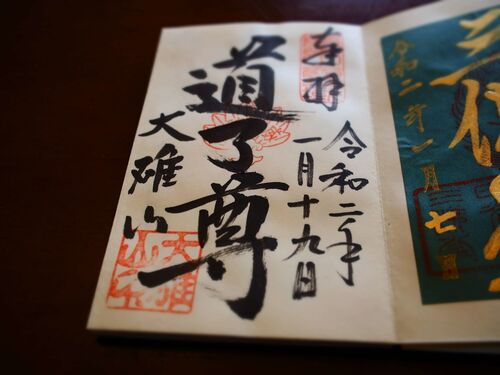 奉拝
令和二年
一月十九日
道了尊
大雄山
令和二年一月七日